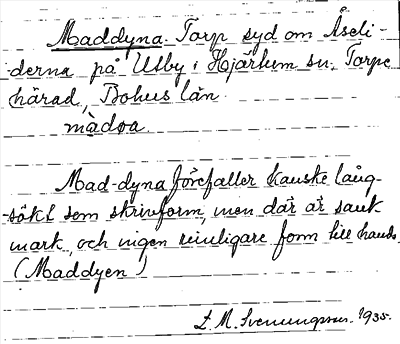 Maddyna. Torp syd om Åseli-
derna på Utby i Hjärtum sn. Torpe
härad, Bohus län
màdøa
Mad-dyna förefaller kanske lång-
-sökt som skrivform, men där är sank
mark, och ingen rimligare form till hands
(Maddyen)
L. M. Svenungsson. 1935.